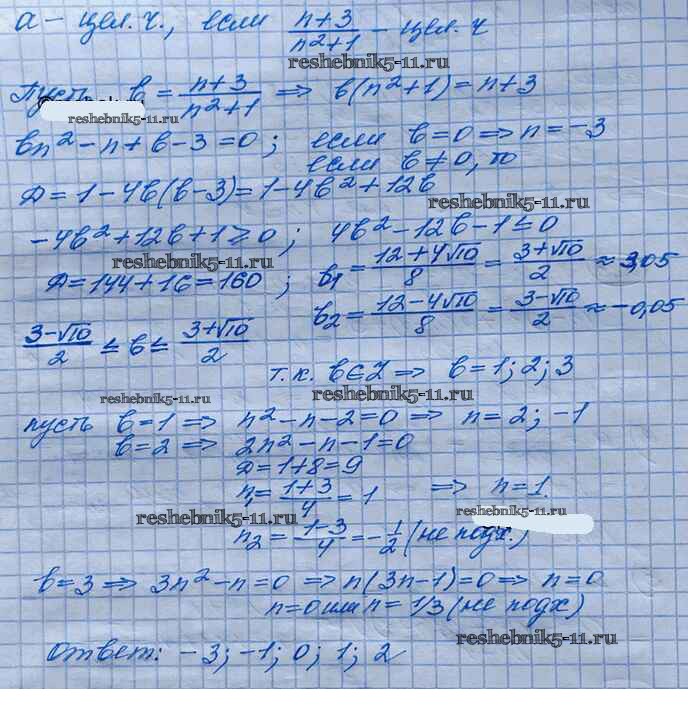 a - цел. ч., если n+3/n²+1 - цел. ч
reshebnik5-11.ru
Пусть b = n+3/n²+1 ⇒ b(n²+1) = n+3
reshebnik5-11.ru
bn² - n + b - 3 = 0; если b = 0 ⇒ n = -3
если b ≠ 0, то
D = 1 - 4b(b-3) = 1 - 4b² + 12b
reshebnik5-11.ru
-4b² + 12b + 1 ≥ 0; 4b² - 12b - 1 ≤ 0
reshebnik5-11.ru
D = 144 + 16 = 160; b₁ = 12+4√10/8 = 3+√10/2 ≈ 3,05
b₂ = 12-4√10/8 = 3-√10/2 ≈ -0,05
3-√10/2 ≤ b ≤ 3+√10/2
т.к. b ∈ Z ⇒ b = 1; 2; 3
reshebnik5-11.ru
reshebnik5-11.ru
пусть b = 1 ⇒ n² - n - 2 = 0 ⇒ n = 2; -1
b = 2 ⇒ 2n² - n - 1 = 0
D = 1 + 8 = 9
n₁ = 1+3/4 = 1 ⇒ n = 1.
reshebnik5-11.ru
reshebnik5-11.ru
n₂ = 1-3/4 = -1/2 (не подх.)
b = 3 ⇒ 3n² - n = 0 ⇒ n(3n-1) = 0 ⇒ n = 0
n = 0 или n = 1/3 (не подх)
reshebnik5-11.ru
Ответ: -3; -1; 0; 1; 2